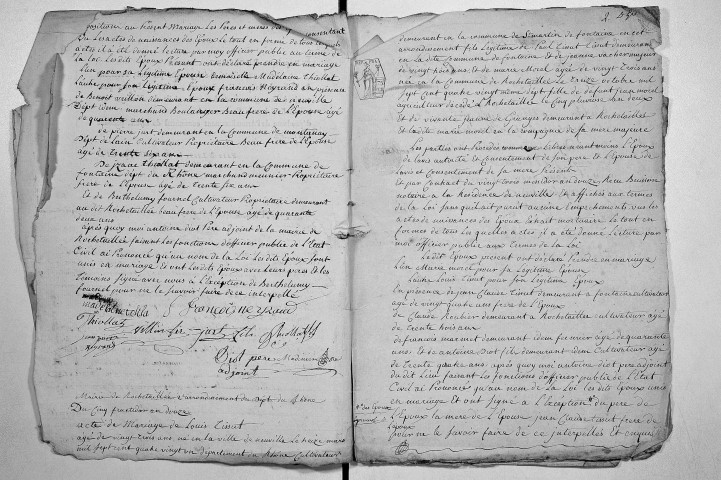 position au present Mariage Les Pere et meres des consentant
Lu Les actes de naissances des Epoux Le tout en forme de tous lesquels
actes il a été donné lecture par moy officier public au terme de
la Loi les dits Epoux présent ont déclaré prendre en mariage
L'un pour sa Legitime Epouse Madelaine Thiollat
L'autre pour son Légitime Epoux François Meyrand en présence
de Benoit Vullion demeurant en la Commune de neuville
Dépt idem marchand Boulanger Beau frere de l'Epouse agé
de quarente ans
de pierre Jart demeurant en la Commune de montanay
Dept de l'ain Cultivateur Propriétaire Beau frere de l'Epouse
agé de trente six ans
De Thiollat demeurant en la Commune de
fontaine dept du Rhône marchand Propriétaire
frere de l'Epouse agé de trente six ans
Et de Barthelemy fournel Cultivateur Propriétaire demeurant
au dit Rochetaillee Beau frere de l'Epouse agé de quarante
deux ans
après quoy moi antoine Diot Pere adjoint de la mairie de
Rochetaillee faisant les fonctions d'officier public de l'Etat
Civil ai Prononcé qu'au nom de la Loi Les dits Epoux sont
unis en mariage et ont les dits Epoux avec leurs peres et les
temoins signé avec nous a l'Exception de Barthelemy
fournel pour ne le savoir faire de ce interpellé
françois meyrand
Thiollat Vullion Jart fils Thiollat
Diot pere
adjoint
Mairie de Rochetaillee arrondissement du dept du Rhône
Du Cinq fructidor an douze
acte de Mariage de Louis Tinet
agé de vingt trois ans né en la ville de neuville le treize mars
mil sept cent quatre vingt un departement du Rhône Cultivateur
demeurant en la commune de St martin de fontaine en cet
arrondissement fils Legitime de Paul Tinet demeurant
en la dite Commune de fontaine et de
de vingt huit ans et de marie Morel agé de vingt trois ans
née en la Commune de Rochetaillee Le treize octobre mil
sept cent quatre vingt dept fille de defunt jean morel
agriculteur decédé a Rochetaillee Le Cinq pluviose an deux
et de vivante Jeanne de Granges demeurant a Rochetaillee
et la dite marie morel en la compagnie de sa mere majeure
Les parties ont Libres avant mene L'Epoux
de lautorité et Consentement de son pere et l'Epouse de
L'avis et Consentement de sa mere Présente
et par Contract du vingt trois messidor an douze Reçu Buisson
notaire a la Résidence de neuville Et affichés aux termes
de la Loi Sans quil ait paru aucune Empechements vu les
actes de naissances des Epoux Extrait mortuaire Le tout en
formes de tous Les quelles actes il a été donné Lecture par
moi officier public aux Termes de la Loi
Les dit Epoux present ont déclaré Prendre en mariage
L'un Marie morel pour sa Légitime Epouse
Lautre Louis Tinet pour son Légitime Epoux
En présence de jean Claude Tinet demeurant a fontaine cultivateur
agé de vingt quatre ans frere de l'Epoux
de Claude Roubier demeurant a Rochetaillee cultivateur agé
de trente huit ans
de françois marmet demeurant idem fermier agé de quarante
ans Et de antoine Diot fils demeurant idem Cultivateur agé
de trente quatre ans après quoy moi antoine Diot pere adjoint
du dit Lieu faisant les fonctions d'officier public de l'Etat
Civil ai Prononcé qu'au nom de la Loi les dits Epoux unis
en mariage et ont signé a l'Exception du pere de
L'Epoux la mere de l'Epouse jean Claude Tinet frere de
L'Epoux
pour ne le savoir faire de ce interpellés et enquis